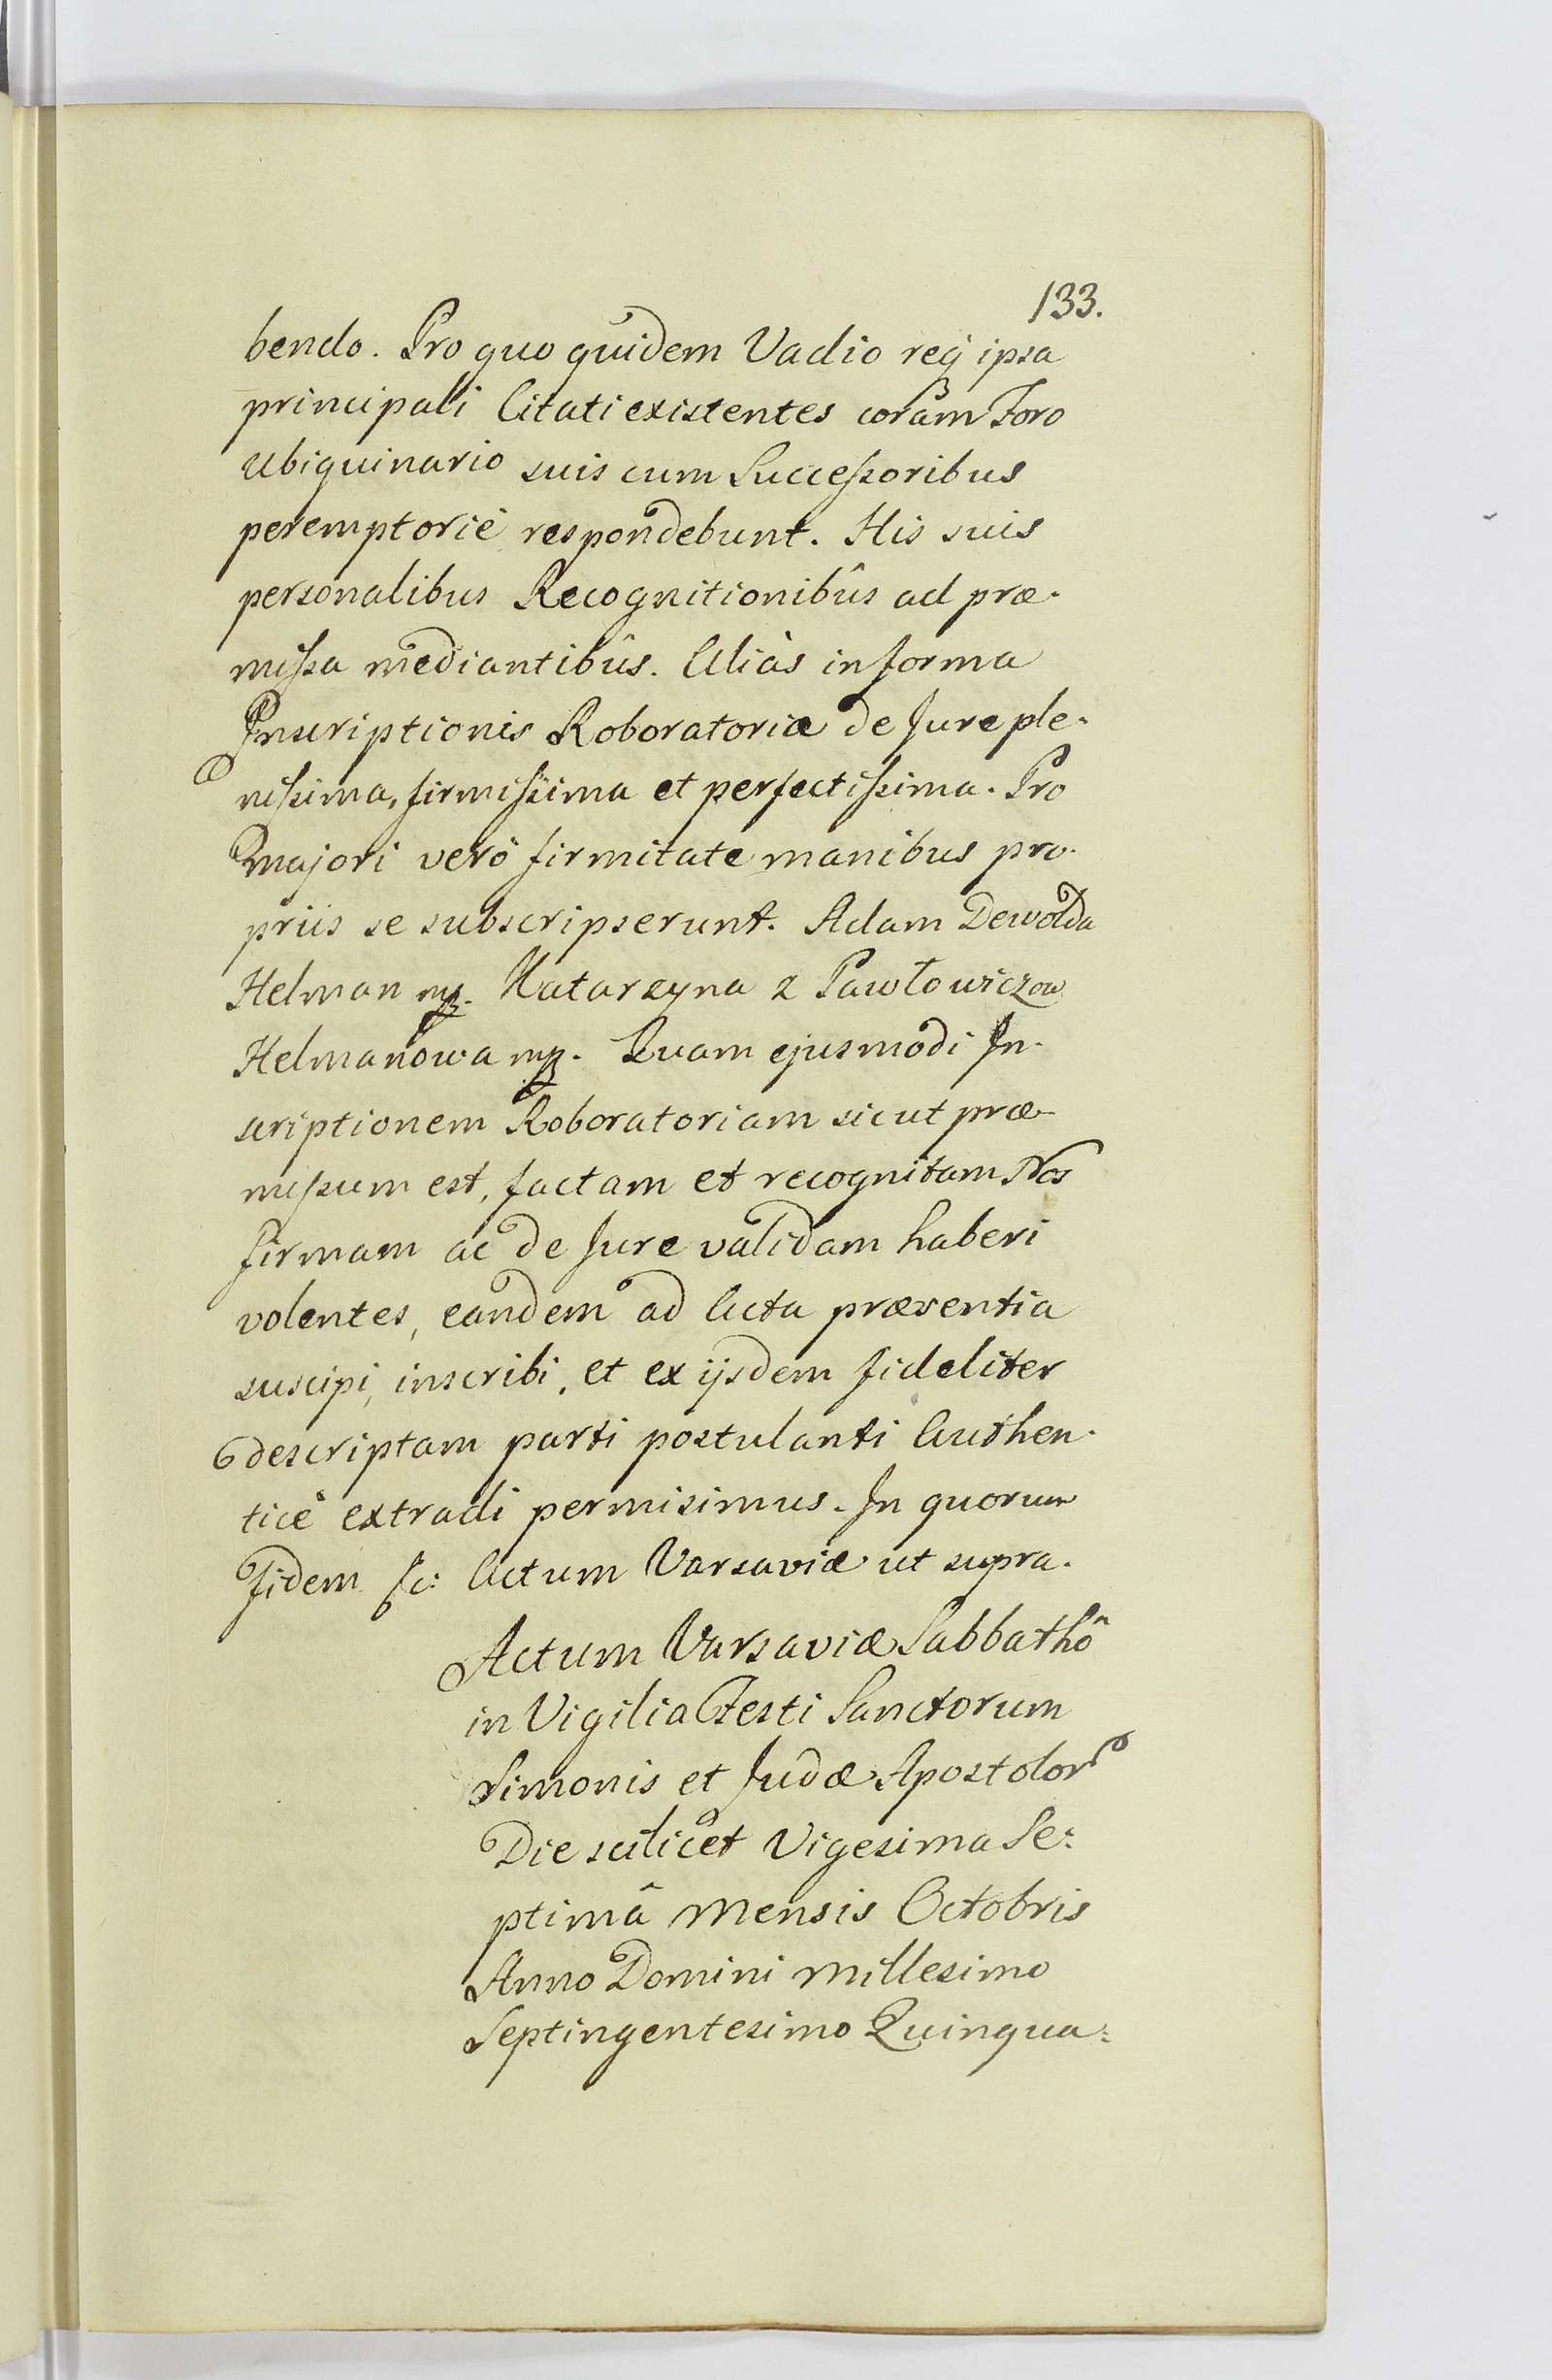 133.
bendo. Pro quo quidem Vadio req̃ ipsa
principali Citati existentes coram Foro
Ubiquinario suis cum Successoribus
peremptorie respondebunt. His suis
personalibus Recognitionibûs ad præ-
missa mediantibûs. Aliàs in forma
Inscriptionis Roboratoriæ de Jure ple-
nissima, firmissima et perfectissima. Pro
majori verò firmitate manibus pro-
priis se subscripserunt. Adam Dewolda
Helman mp. Katarzyna z Pawłowiczow
Helmanowa mp. Quam ejusmodi In-
scriptionem Roboratoriam sicut præ-
missum est, factam et recognitam Nos
firmam ac de Jure validam haberi
volentes, eandem ad Acta præsentia
suscipi, inscribi, et ex ijsdem fideliter
descriptam parti postulanti Authen-
ticè extradi permisimus. In quorum
Fidem &c: Actum Varsaviæ ut supra.
Actum Varsaviæ Sabbathô
in Vigilia Festi Sanctorum
Simonis et Judæ Apostolor̃
Die scilicet Vigesima Se-
ptimâ Mensis Octobris
Anno Domini Millesimo
Septingentesimo Quinqua-